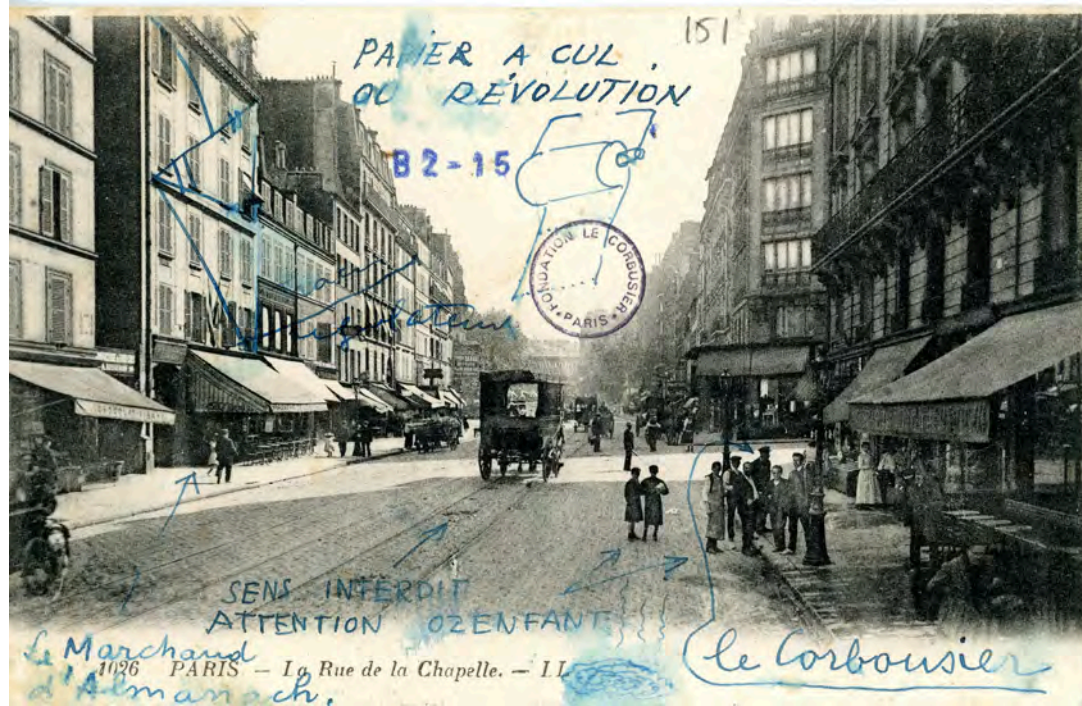 151
PAPIER A CUL.
OU RÉVOLUTION
B2-15
FONDATION LE CORBUSIER
PARIS
régulateur
SENS INTERDIT
ATTENTION OZENFANT
Le Marchand
d'Almanach.
1026 PARIS – La Rue de la Chapelle. – LL
le Corbousier